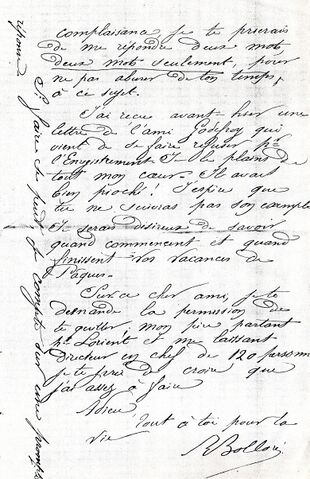 complaisance je te prierais
de me répondre deux mots
deux mots seulement, pour
ne pas abuser de ton temps,
à ce sujet.
J'ai reçu avant-hier une
lettre de l'ami Godefroy qui
vient de se faire refuser pr
l'Enregistrement Je le plains de
tout mon cœur. Il avait
bien pioché! J'espère que
tu ne suivras pas son exemple
Je serais désireux de savoir
quand commencent et quand
finissent vos vacances de
Pâques.
Sur ce cher ami, je te
demande la permission de
te quitter, mon père partant
pr Lorient et me laissant
Directeur en chef de 120 personnes
je te prie de croire que
j'ai assez à faire
Adieu
tout à toi pour la
vie
Bolloré
réponse Si faire se peut je compte sur une prompte